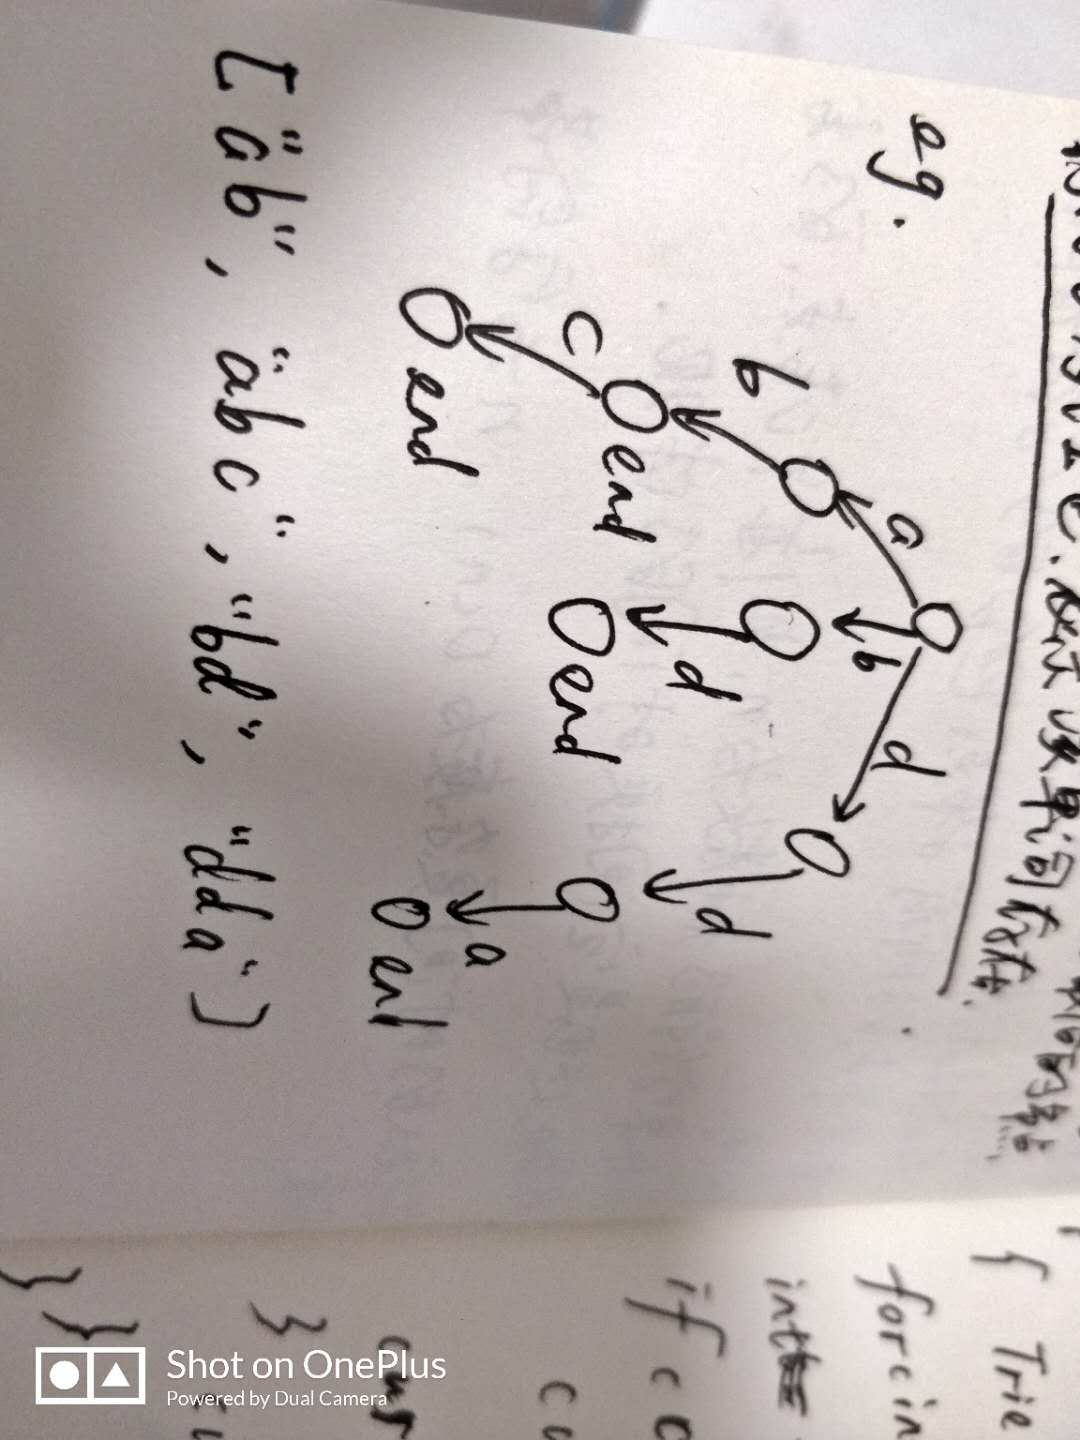 表示该单词存在.
的节点
eg.
a
b
d
b
d
d
end
c
end
a
end
end
["ab", "abc", "bd", "dda"]
{ Trie
for(in
int
if (c
cu
cur
}
}
}
Shot on OnePlus
Powered by Dual Camera